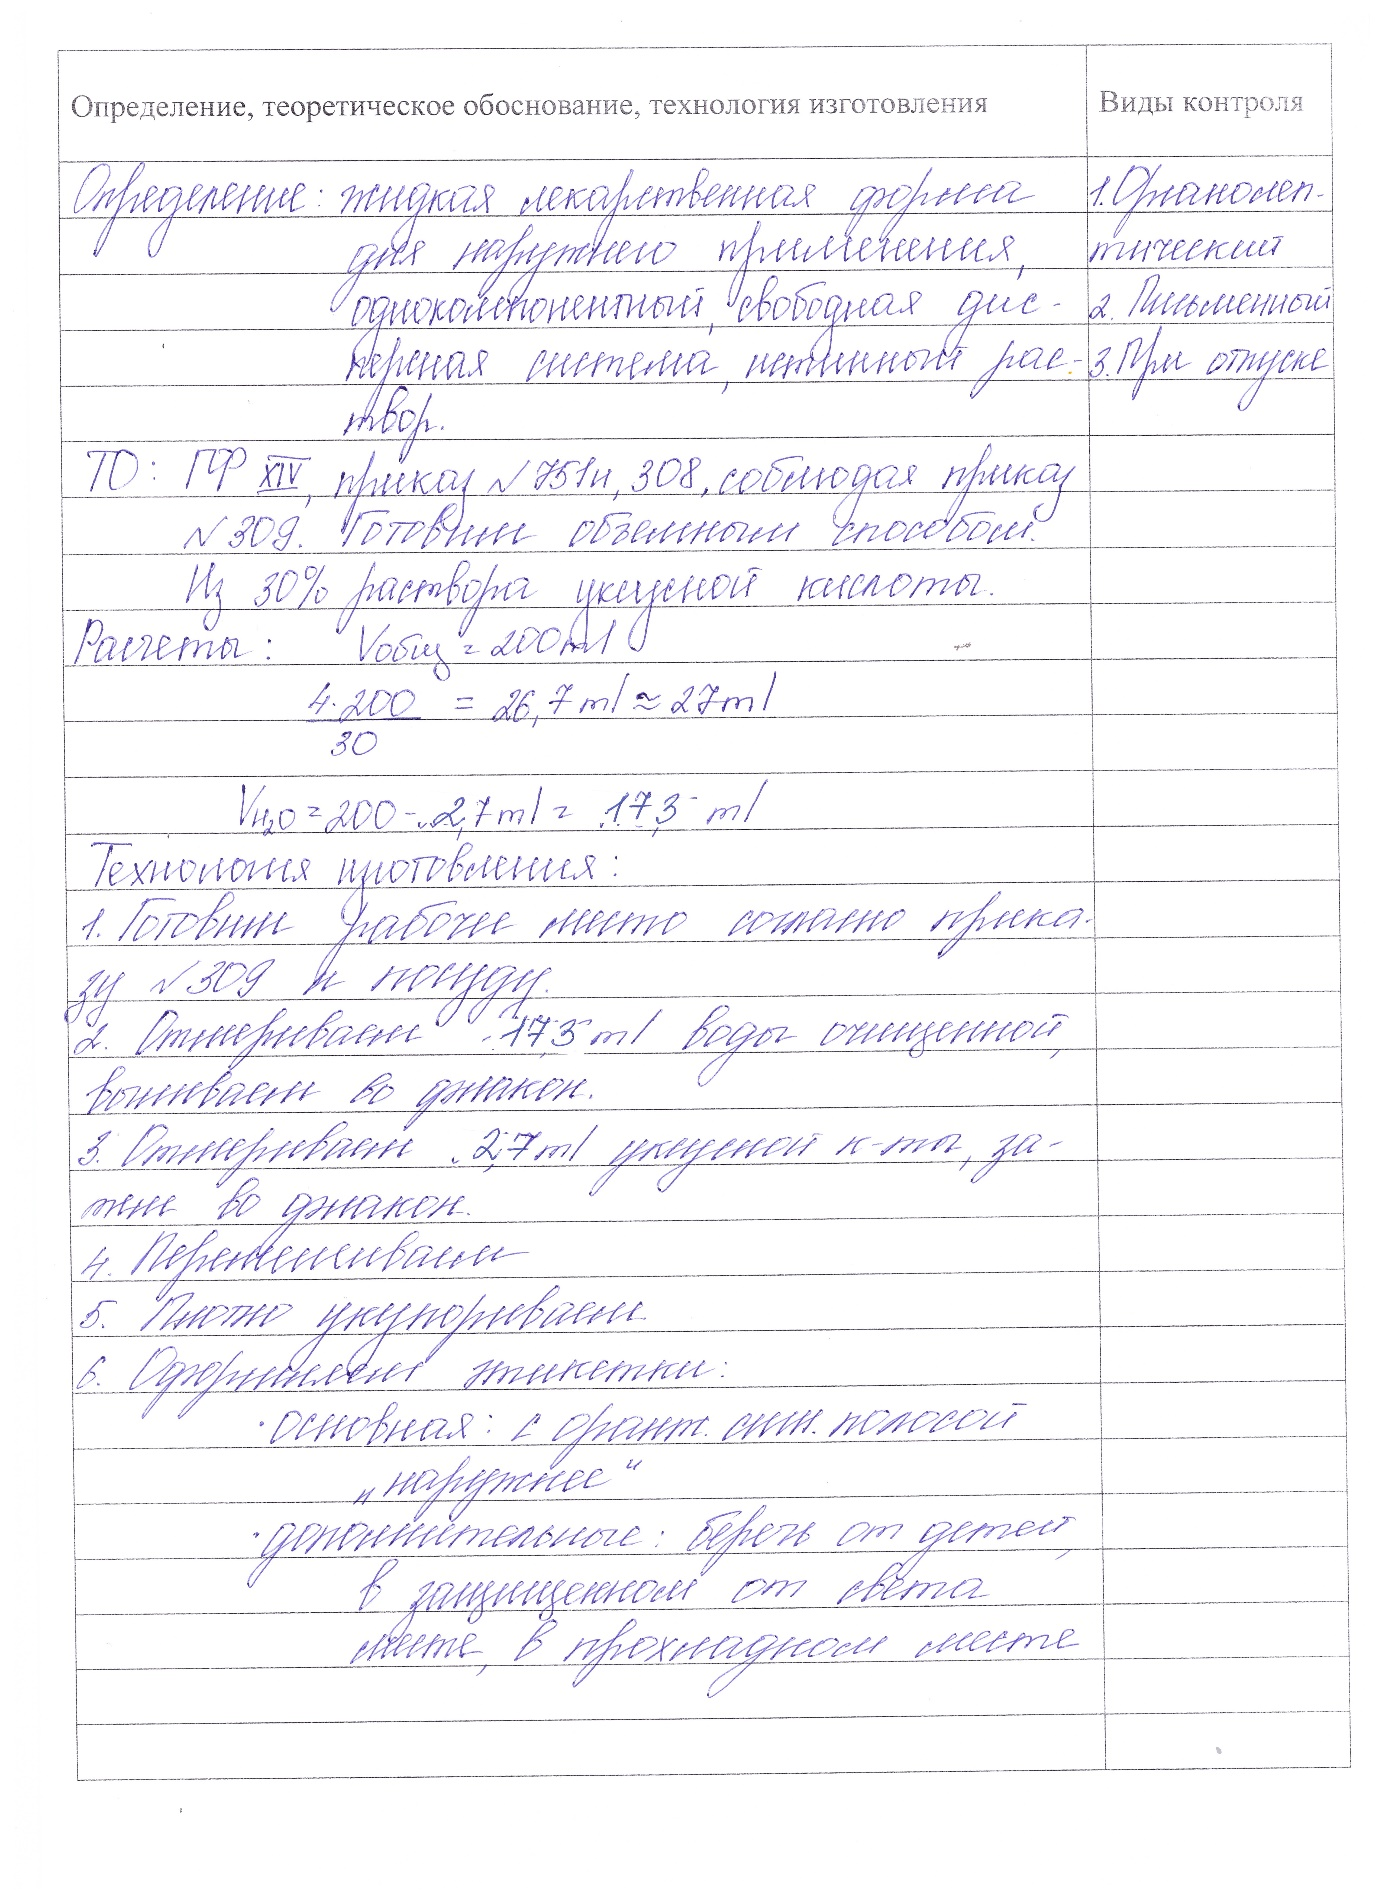 Определение, теоретическое обоснование, технология изготовления
Виды контроля
Определение: жидкая лекарственная форма
для наружнего применения,
однокомпонентный, свободная дис-
персная система, истинный рас-
твор.
1. Органолеп-
тический
2. Письменный
3. При отпуске
ТО: ГФ XIV, приказ №751н, 308, соблюдая приказ
№309. Готовим объемным способом.
Из 30% раствора уксусной кислоты.
Расчеты: Vобщ = 200 ml
4·200 = 26,7 ml ≈ 27 ml
30
VH₂O = 200 - 2,7 ml = 17,3 ml
Технология изготовления:
1. Готовим рабочее место согласно прика-
зу №309 и посуду.
2. Отмериваем 17,3 ml воды очищенной,
выливаем во флакон.
3. Отмериваем 2,7 ml уксусной к-ты, за-
тем во флакон.
4. Перемешиваем
5. Плотно укупориваем
6. Оформляем этикетки:
· основная: с оранж. сигн. полосой
„наружнее“
· дополнительные: беречь от детей,
в защищенном от света
месте, в прохладном месте